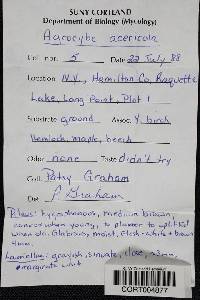 SUNY CORTLAND
Department of Biology (Mycology)
Agrocybe acericola
Coll. nor. 5 Date 22 July 88
Location N.Y., Hamilton Co, Raquette
Lake, Long Point, Plot 1
Substrate ground Assoc. Y. birch
Hemlock, maple, beech
Odor none Taste didn't try
Coll. Patsy Graham
Det. P. Graham
Pileus: hygrophanous, medium brown,
convex when young, to planar to uplifted
when old. Glabrous, moist. Flesh white & brown
4mm.
Lamellae: grayish, sinuate, close,
marginate white
CORT004877